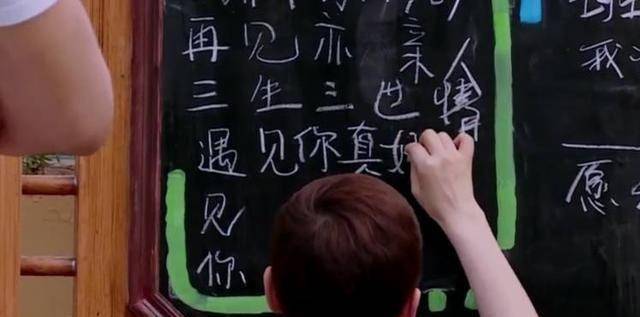 再见亦亲人
三生三世情
遇见你真好
见
你
我
愿